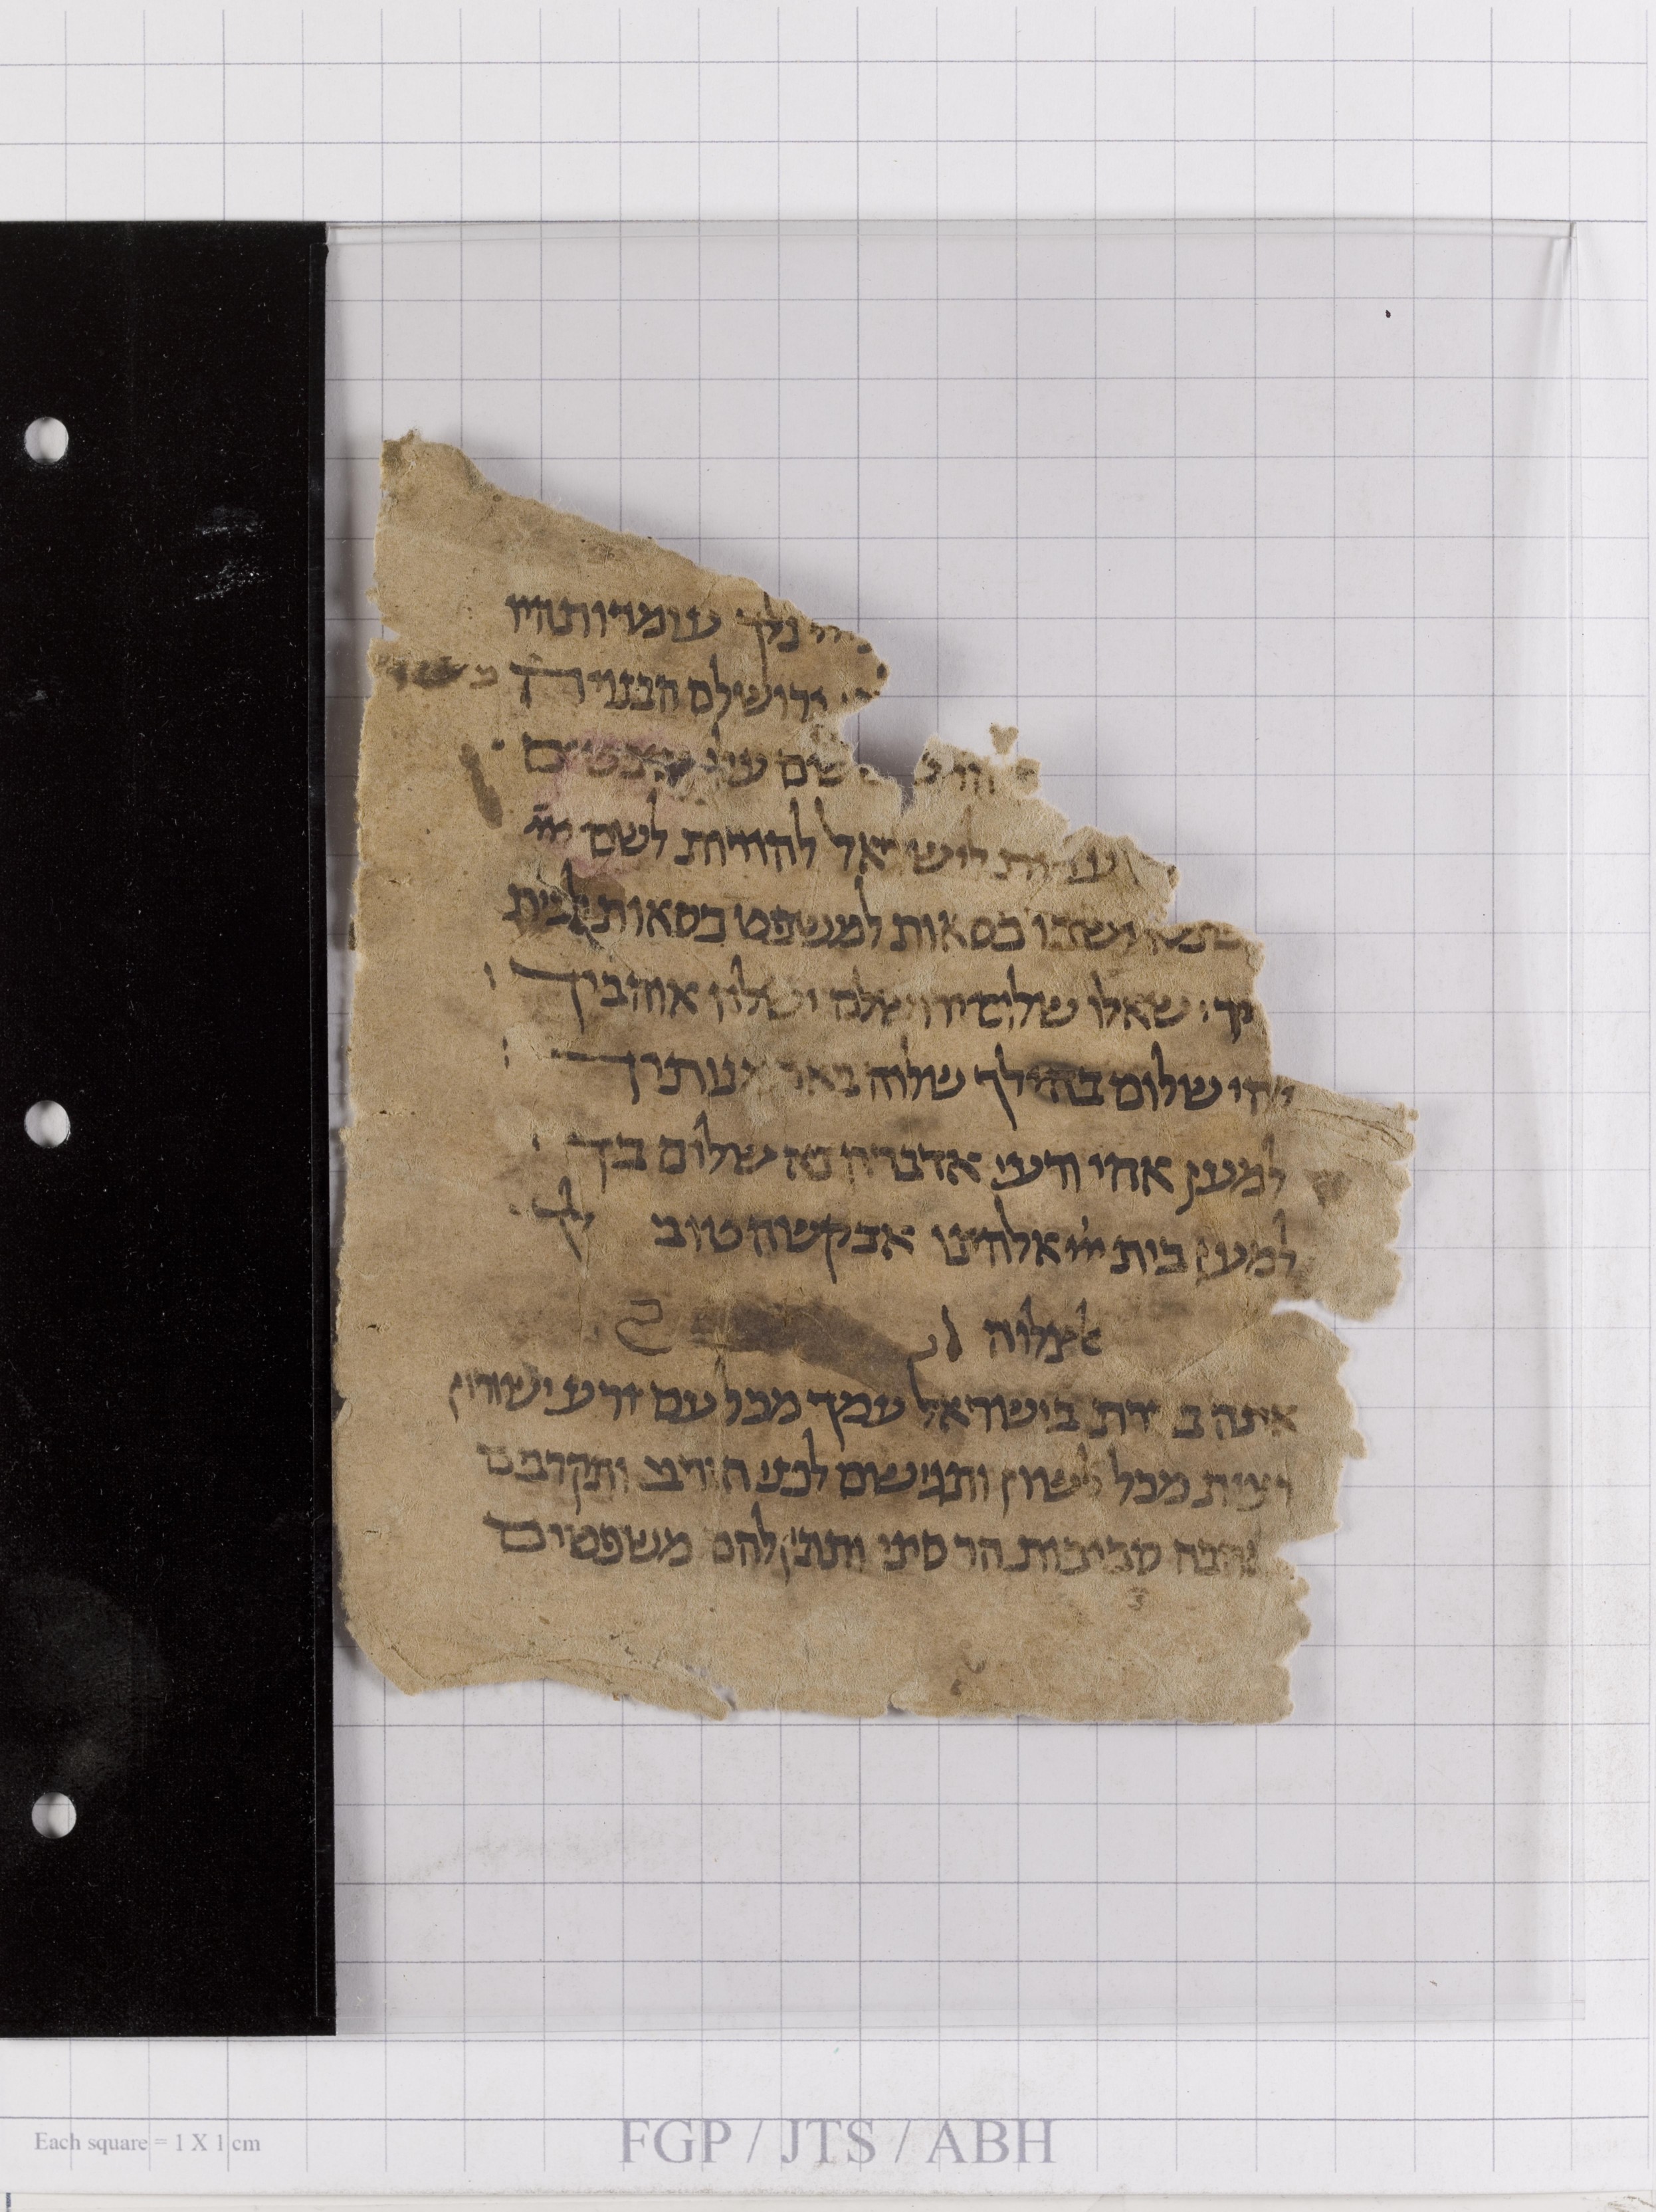 נלך עומדות היו
ירושלם הבנויה
שם עלו שבטים
עדות לישראל להודות לשם ייי
ישבו כסאות למשפט כסאות לבית
שאלו שלום ירושלם ישליו אוהביך
יהי שלום בחילך שלוה בארמנותיך
למען אחי ורעי אדברה נא שלום בך
למען בית ייי אלהינו אבקשה טוב לך
אתה בישראל עמך מכל עם זרע ישורון
מכל לשון ותגישם לפני ותקרבם
סביבות הר סיני ותתן להם משפטים
FGP / JTS / ABH
Each square = 1 X 1 cm